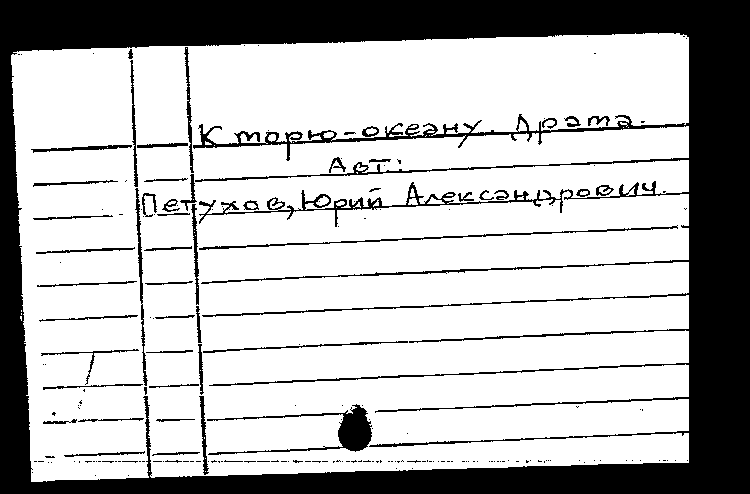 К морю-океану. Драма.
Авт:
Петухов, Юрий Александрович.